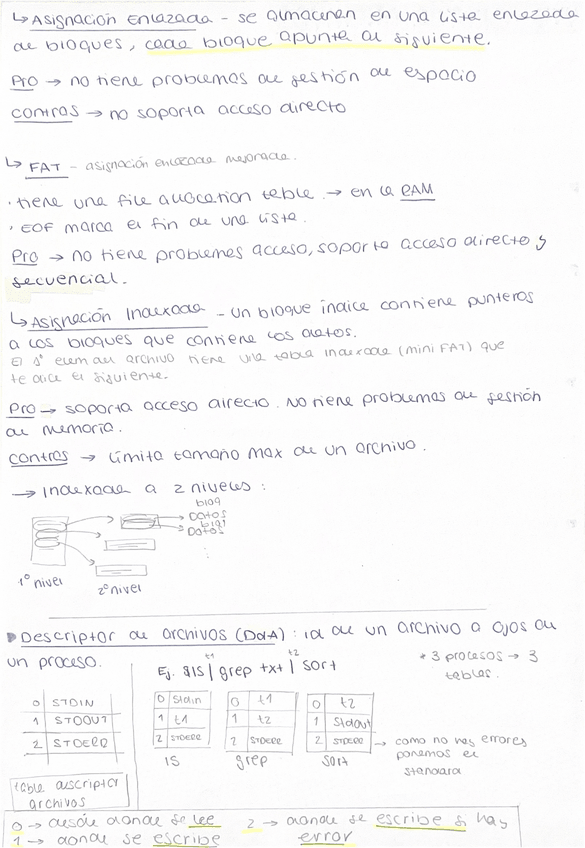 ↳ Asignación Enlazada - se almacenan en una lista enlazada
de bloques, cada bloque apunta al siguiente.
Pro → no tiene problemas de gestión de espacio
contras → no soporta acceso directo
↳ FAT - asignación enlazada mejorada.
· tiene una file allocation table. → en la RAM
· EOF marca el fin de una lista.
Pro → no tiene problemas acceso, soporta acceso directo y
secuencial.
↳ Asignación Indexada - un bloque índice contiene punteros
a los bloques que contiene los datos.
El 1º elem del archivo tiene una tabla indexada (mini FAT) que
te dice el siguiente.
Pro → soporta acceso directo. No tiene problemas de gestión
de memoria.
contras → límita tamaño max de un archivo.
→ Indexada a 2 niveles:
bloq
DATOS
bloq
DATOS
1º nivel
2º nivel
Descriptor de archivos (DdA): id de un archivo a ojos de
un proceso.
t1 t2
Ej. $ls | grep txt | sort
* 3 procesos → 3
tablas.
0 STDIN
1 STDOUT
2 STDERR
tabla descriptor
archivos
0 Stdin
1 t1
2 STDERR
ls
0 t1
1 t2
2 STDERR
grep
0 t2
1 Stdout
2 STDERR
sort
→ como no hay errores
ponemos el
standard
0 → desde donde se lee
1 → donde se escribe
2 → donde se escribe si hay
error